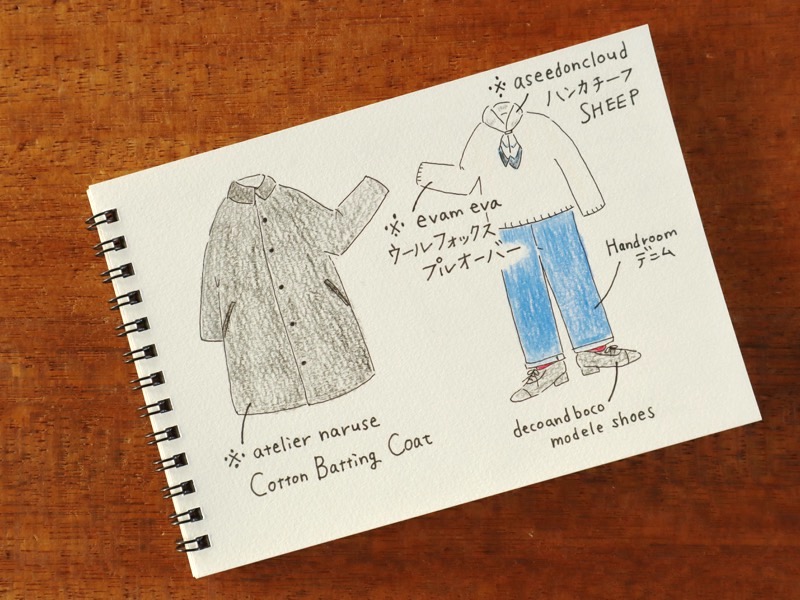 ※ aseedoncloud
ハンカチーフ
SHEEP
※ evam eva
ウールフォックス
プルオーバー
Handroom
デニム
decoandboco
modele shoes
※ atelier naruse
Cotton Batting Coat